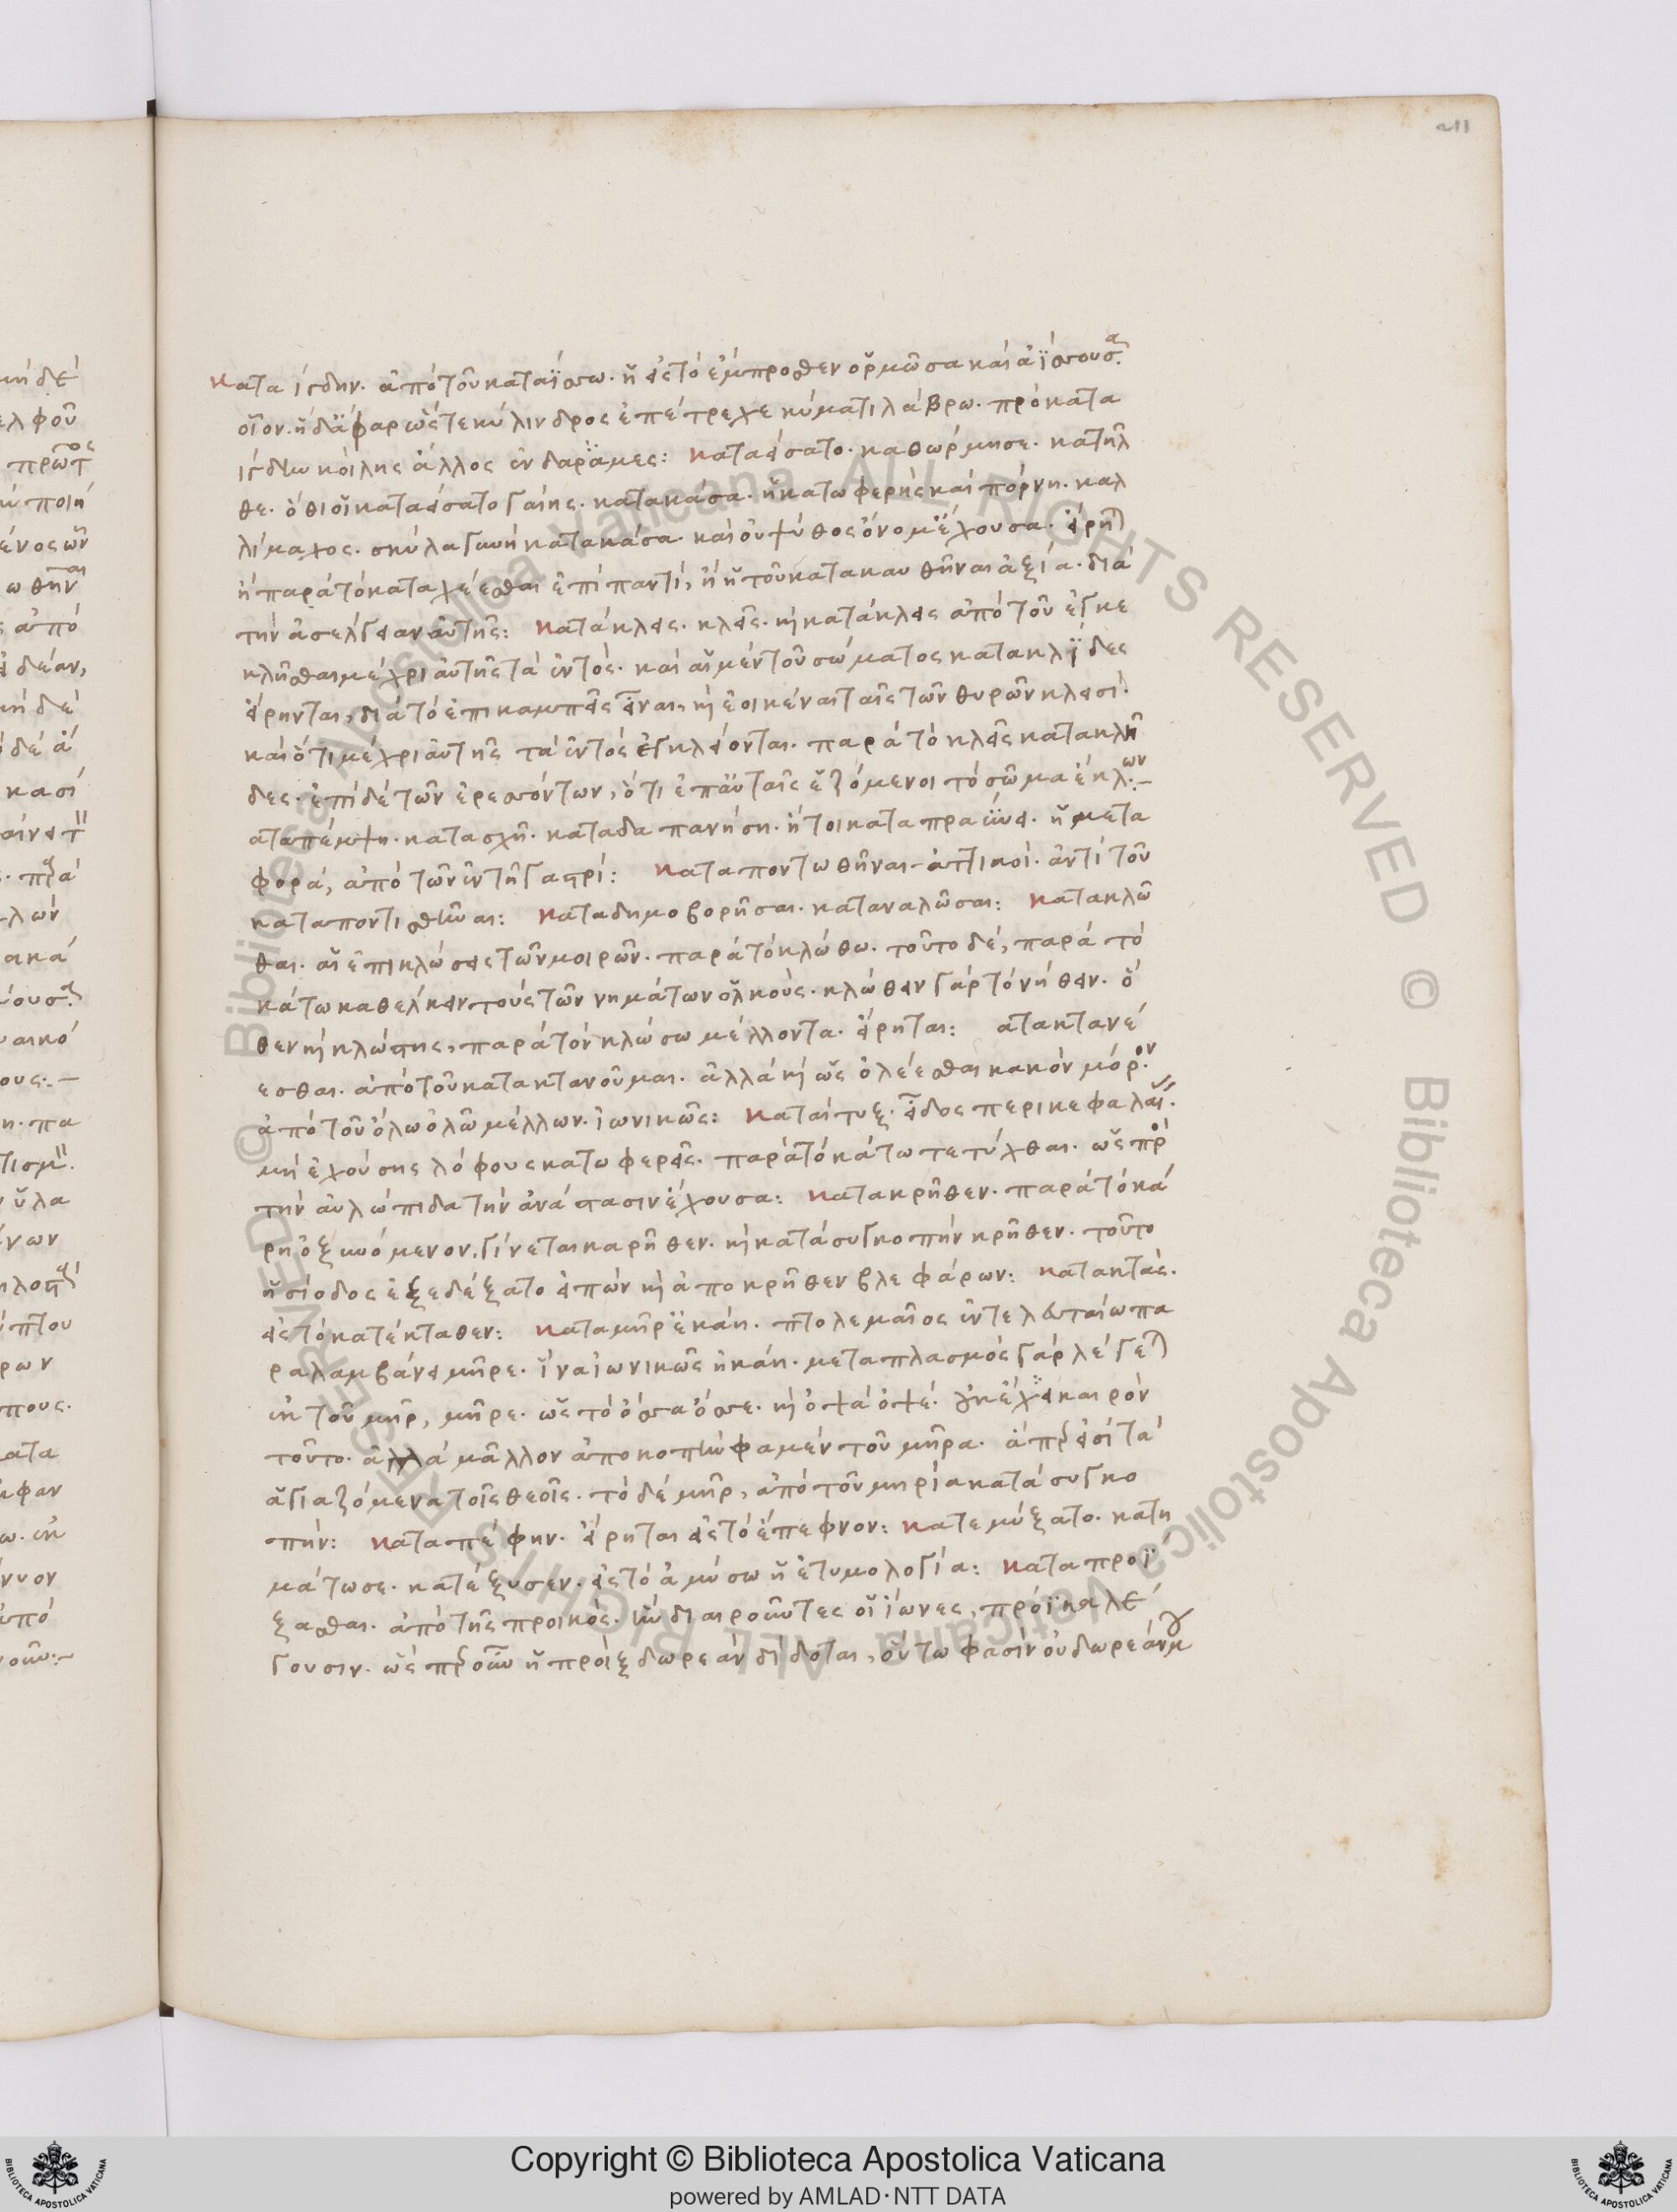 211
κατα ΐγδην. ἀπὸ τοῦ καταΐσσω. ἡ εἰς τὸ ἔμπροσθεν ὁρμῶσα καὶ ἀΐσσουσα.
οἷον. ἡ δ' ἄφαρ ὥστε κύλινδρος ἐπέτρεχε κύματι λάβρω. πρὸ κατα
ΐγδην κοίλης ἄλλος
καταείσατο. καθώρμησε. κατῆλ
θε. ὅθι οἱ καταείσατο γαίης. κατακάσα. ἡ κατωφερὴς καὶ πόρνη. καλ
λίμαχος. κατακάσα. καὶ οὐ ψύθος ὄνομ' ἔχουσα. εἴρηται
ἢ παρὰ τὸ καταχέεσθαι ἐπὶ παντί, ἢ ἡ τοῦ κατακαυθῆναι ἀξία. διὰ
τὴν ἀσέλγειαν αὐτῆς: κατάκλεις. κλεῖς. καὶ κατάκλεις ἀπὸ τοῦ ἐγκε
κλῆσθαι μέχρι αὐτῆς τὰ ἐντός. καὶ αἱ μὲν τοῦ σώματος κατακλῖδες
εἴρηνται, διὰ τὸ ἐπικαμπεῖς εἶναι, καὶ ἐοικέναι ταῖς τῶν θυρῶν κλεισί.
καὶ ὅτι μέχρι αὐτῆς τὰ ἐντὸς ἐγκλείονται. παρὰ τὸ κλεῖς κατακλῆ
δες. ἐπὶ δὲ τῶν ἐρεσσόντων, ὅτι ἐπ' αὐταῖς ἑζόμενοι τὸ σῶμα ἔκλων.
αταπέμψη. κατασχῆ. καταδαπανήση. ἤτοι καταπραΰνει. ἡ μετα
φορά, ἀπὸ τῶν ἐν τῆ γαστρί: καταποντωθῆναι ἀττικοί. ἀντὶ τοῦ
καταποντισθῆναι: καταδημοβορῆσαι. καταναλῶσαι: κατακλῶ
θαι. αἱ ἐπικλώσεις τῶν μοιρῶν. παρὰ τὸ κλώθω. τοῦτο δέ, παρὰ τὸ
κάτω καθέλκειν τοὺς τῶν νημάτων ὁλκούς. κλώθειν γὰρ τὸ νήθειν. ὅ
θεν καὶ κλώστης, παρὰ τὸν κλώσω μέλλοντα. εἴρηται: ατακτανέ
εσθαι. ἀπὸ τοῦ κατακτανοῦμαι. ἀλλὰ καὶ ὡς ὀλέεσθαι κακὸν μόρον.
ἀπὸ τοῦ ὄλω ὀλῶ μέλλων. ἰωνικῶς: καταίτυξ. εἶδος περικεφαλαίας.
μὴ ἐχούσης λόφους κατωφερεῖς. παρὰ τὸ κάτω τετύχθαι. ὡς πρὸς
τὴν αὐλώπιδα τὴν ἀνάστασιν ἔχουσα: κατακρῆθεν. παρὰ τὸ κά
ρη ὀξυνόμενον. γίνεται καρῆθεν. καὶ κατὰ συγκοπὴν κρῆθεν. τοῦτο
ἡσίοδος ἐξεδέξατο εἰπὼν καὶ ἀπὸ κρῆθεν βλεφάρων: κατακτάς.
εἰς τὸ κατέκταθεν: κατα μῆρ' ἐκάη. πτολεμαῖος ἐν τελευταίω πα
ραλαμβάνει μῆρε. ἵνα ἰωνικῶς ἠκάη. μεταπλασμὸς γὰρ λέγεται
ἐκ τοῦ μῆρ, μῆρε. ὡς τὸ ὄσσα ὄσσε. καὶ ὄψα ὀψέ. οὐκ ἔχει καιρὸν
τοῦτο. ἀλλὰ μᾶλλον ἀποκοπὴν φαμὲν τοῦ μῆρα. ἅπερ εἰσὶ τὰ
ἁγιαζόμενα τοῖς θεοῖς. τὸ δὲ μῆρ, ἀπὸ τοῦ μηρία κατὰ συγκο
πήν: καταπέφνην. εἴρηται εἰς τὸ ἔπεφνον: κατεμύξατο. κατη
μάτωσε. κατέξυσεν. εἰς τὸ ἀμύσω ἡ ἐτυμολογία: καταπροΐ
ξασθαι. ἀπὸ τῆς προικός. ἣν διαιροῦντες οἱ ἴωνες, πρόϊκα λέ
γουσιν. ὡς περ οὖν ἡ προὶξ δωρεὰν δίδοται, οὕτω φασὶν οὐ δωρεὰν
Copyright © Biblioteca Apostolica Vaticana
powered by AMLAD·NTT DATA